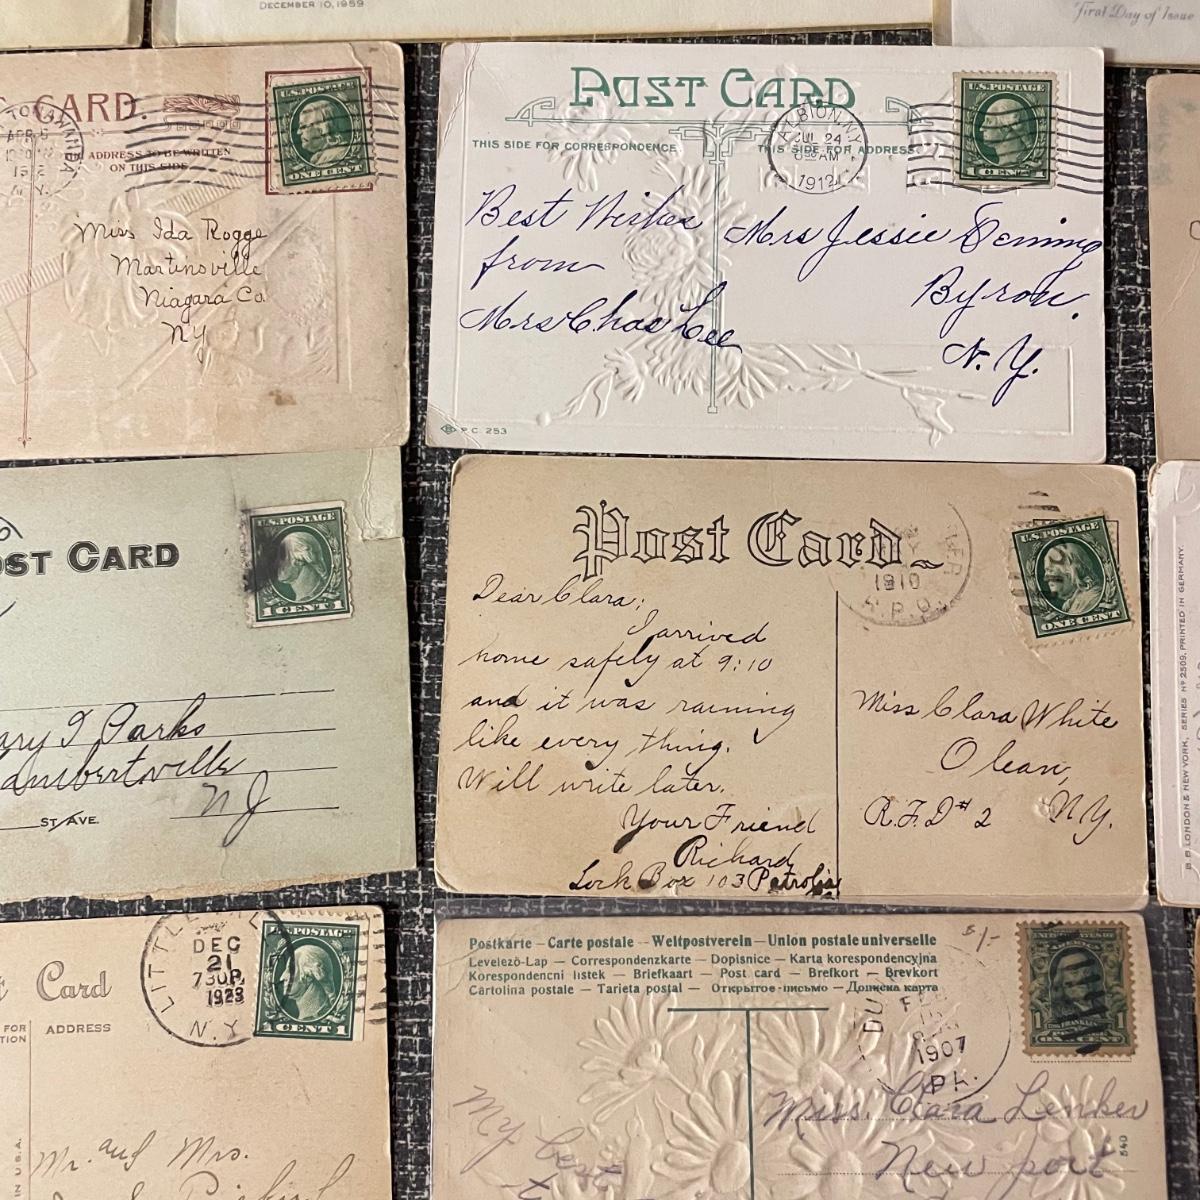 DECEMBER 10, 1959
First Day of Issue
CARD.
TONAWANDA
APR 5
N.Y.
ADDRESS TO BE WRITTEN
ON THIS SIDE
U.S. POSTAGE
ONE CENT
Miss Ida Rogge
Martinsville
Niagara Co.
NY
POST CARD
THIS SIDE FOR CORRESPONDENCE.
THIS SIDE FOR ADDRESS
ALBION, N.Y.
JUL 24
AM
1912
U.S. POSTAGE
1 CENT 1
Best Wishes
from
Mrs Chas Lee
Mrs Jessie Deming
Byron.
N.Y.
P.C. 253
OST CARD
U.S. POSTAGE
1 CENT 1
ary I Parks
ambertville
NJ
ST/AVE.
Post Card
1910
R.P.O.
U.S. POSTAGE
ONE CENT
Dear Clara;
I arrived
home safely at 9:10
and it was raining
like every thing.
Will write later.
Your Friend
Richard
Lock Box 103 Petrolia
Miss Clara White
Olean,
R.F.D # 2 NY.
B. B. LONDON & NEW YORK, SERIES Nº 2509. PRINTED IN GERMANY.
LITTLE
DEC
21
730P.
1923
N.Y.
U.S. POSTAGE
1 CENT 1
Card
FOR
TION
ADDRESS
Mr. and Mrs.
IN U.S.A.
Postkarte – Carte postale – Weltpostverein – Union postale universelle
Levelező-Lap – Correspondenzkarte – Dopisnice – Karta korespondencyjna
Korespondencni listek – Briefkaart – Post card – Brefkort – Brevkort
Cartolina postale – Tarieta postal – Открытое письмо – Дописна карта
5/-
DU
FEB
1907
PA.
FRANKLIN
1 1
ONE CENT
My best
Miss. Clara Lenker
New port
540